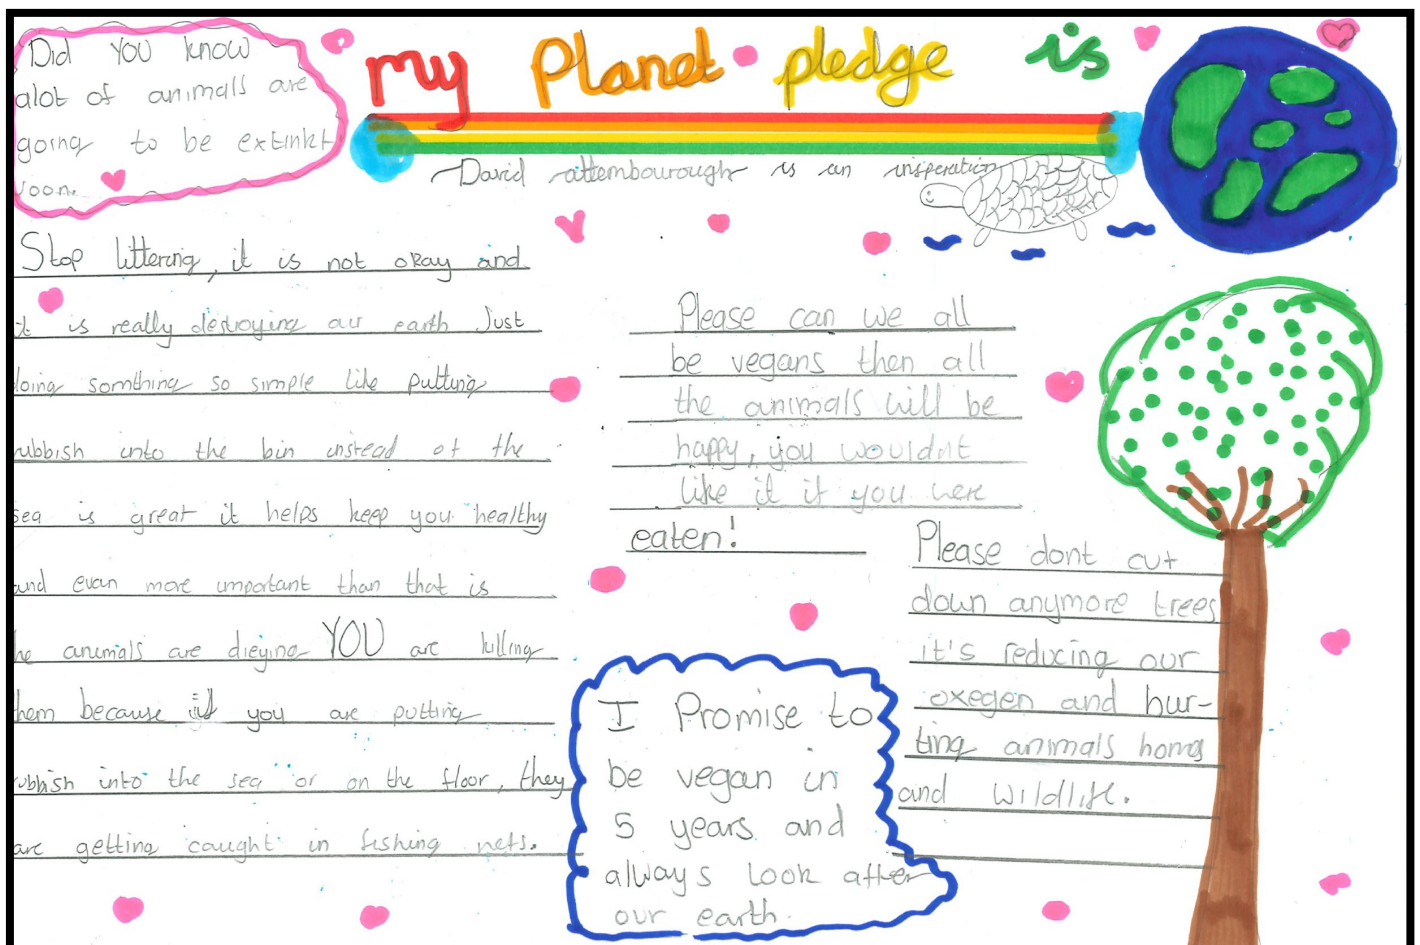 Did you know
alot of animals are
going to be extinkt
soon.
my Planet pledge is
David attembourough is an insperation
Stop littering, it is not okay and
it is really destroying our earth Just
doing somthing so simple like putting
rubbish into the bin instead of the
sea is great it helps keep you healthy
and evan more important than that is
he animals are dieying YOU are killing
them because you are putting
rubbish into the sea or on the floor, they
are getting caught in fishing nets.
Please can we all
be vegans then all
the animals will be
happy, you wouldnt
like it if you were
eaten!
Please dont cut
down anymore trees
it's reducing our
oxegen and hur-
ting animals homs
and wildlife.
I Promise to
be vegan in
5 years and
always look after
our earth.